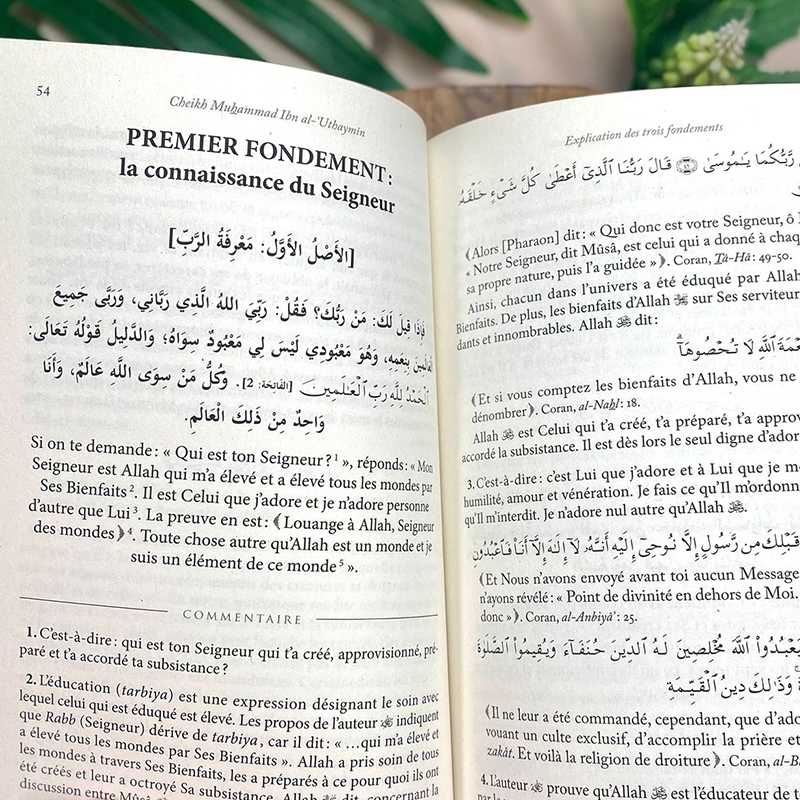 54
Cheikh Muhammad Ibn al-‘Uthaymin
PREMIER FONDEMENT :
la connaissance du Seigneur
[الأَصْلُ الأَوَّلُ: مَعْرِفَةُ الرَّبِّ]
فَإِذَا قِيلَ لَكَ: مَنْ رَبُّكَ؟ فَقُلْ: رَبِّيَ اللهُ الَّذِي رَبَّانِي، وَرَبَّى جَمِيعَ
العَالَمِينَ بِنِعَمِهِ، وَهُوَ مَعْبُودِي لَيْسَ لِي مَعْبُودٌ سِوَاهُ؛ وَالدَّلِيلُ قَوْلُهُ تَعَالَى:
الْحَمْدُ لِلَّهِ رَبِّ الْعَالَمِينَ [الفَاتِحَة: 2]. وَكُلُّ مَنْ سِوَى اللَّهِ عَالَمٌ، وَأَنَا
وَاحِدٌ مِنْ ذَلِكَ الْعَالَمِ.
Si on te demande : « Qui est ton Seigneur ?¹ », réponds : « Mon
Seigneur est Allah qui m’a élevé et a élevé tous les mondes par
Ses Bienfaits². Il est Celui que j’adore et je n’adore personne
d’autre que Lui³. La preuve en est : ⟪Louange à Allah, Seigneur
des mondes⟫⁴. Toute chose autre qu’Allah est un monde et je
suis un élément de ce monde⁵ ».
COMMENTAIRE
1. C’est-à-dire : qui est ton Seigneur qui t’a créé, approvisionné, pré-
paré et t’a accordé ta subsistance ?
2. L’éducation (tarbiya) est une expression désignant le soin avec
lequel celui qui est éduqué est élevé. Les propos de l’auteur indiquent
que Rabb (Seigneur) dérive de tarbiya, car il dit : « …qui m’a élevé et
a élevé tous les mondes par Ses Bienfaits ». Allah a pris soin de tous
les mondes à travers Ses Bienfaits, les a préparés à ce pour quoi ils ont
été créés et leur a octroyé Sa subsistance. Allah ﷻ dit, concernant la
discussion entre Mûsâ
Explication des trois fondements
رَّبُّكُمَا يَـٰمُوسَىٰ ٤٩ قَالَ رَبُّنَا ٱلَّذِىٓ أَعْطَىٰ كُلَّ شَىْءٍ خَلْقَهُۥ
⟪Alors [Pharaon] dit : « Qui donc est votre Seigneur, ô
« Notre Seigneur, dit Mûsâ, est celui qui a donné à chaq
sa propre nature, puis l’a guidée »⟫. Coran, Tâ-Hâ : 49-50.
Ainsi, chacun dans l’univers a été éduqué par Allah
Bienfaits. De plus, les bienfaits d’Allah ﷻ sur Ses serviteur
dants et innombrables. Allah ﷻ dit :
نِعْمَةَ ٱللَّهِ لَا تُحْصُوهَآ
⟪Et si vous comptez les bienfaits d’Allah, vous ne
dénombrer⟫. Coran, al-Nahl : 18.
Allah ﷻ est Celui qui t’a créé, t’a préparé, t’a approv
accordé la subsistance. Il est dès lors le seul digne d’ador
3. C’est-à-dire : c’est Lui que j’adore et à Lui que je m
humilité, amour et vénération. Je fais ce qu’Il m’ordonn
qu’Il m’interdit. Je n’adore nul autre qu’Allah ﷻ.
قَبْلِكَ مِن رَّسُولٍ إِلَّا نُوحِىٓ إِلَيْهِ أَنَّهُۥ لَآ إِلَـٰهَ إِلَّآ أَنَا۠ فَٱعْبُدُونِ
⟪Et Nous n’avons envoyé avant toi aucun Message
n’ayons révélé : « Point de divinité en dehors de Moi.
donc »⟫. Coran, al-Anbiyâ’ : 25.
لِيَعْبُدُوا۟ ٱللَّهَ مُخْلِصِينَ لَهُ ٱلدِّينَ حُنَفَآءَ وَيُقِيمُوا۟ ٱلصَّلَوٰةَ
وَذَٰلِكَ دِينُ ٱلْقَيِّمَةِ
⟪Il ne leur a été commandé, cependant, que d’ado
vouant un culte exclusif, d’accomplir la prière et
zakât. Et voilà la religion de droiture⟫. Coran, al-B
4. L’auteur prouve qu’Allah ﷻ est l’éducateur de t